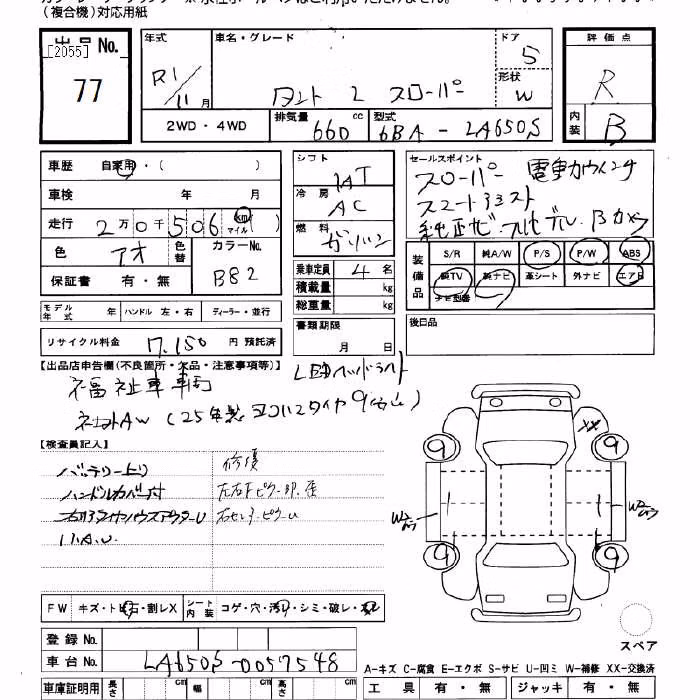 (複合機)対応用紙
出品No.
[2055]
77
年式
R1/11月
車名・グレード
タント L スローパー
ドア
5
形状
W
評価点
R
内装
B
2WD・4WD
排気量
660 cc
型式
6BA - LA650S
車歴 自家用・( )
車検 年 月
走行 2万0千506 km マイル ( )
色 アオ
色替
カラーNo.
B82
保証書 有・無
シフト
IAT
冷房
AC
燃料
ガソリン
乗車定員 4 名
積載量 kg
総重量 kg
セールスポイント
スローパー 電動カウインチ
スマートアシスト
純正ナビ・フルセグ・Bカメラ
装備品
S/R 純A/W P/S P/W ABS
純TV 純ナビ 革シート 外ナビ エアB
ナビ型番
モデル年式 年
ハンドル 左・右
ディーラー・並行
リサイクル料金 7,150 円 預託済
書類期限
月 日
後日品
【出品店申告欄(不良箇所・欠品・注意事項等)】
LEDヘッドライト
福祉車車両
社外AW(25年製ヨコハマタイヤ9分山)
【検査員記入】
バッテリー上り
ハンドルカバー付
右リアタイヤハウスアウターU
修復
左右Fピラー
右センターピラーU
9
9
9
9
XX
W2
W2
FW キズ・トビ石・割レX
シート内装 コゲ・穴・汚レ・シミ・破レ・スレ
登録No.
車台No. LA650S-0057548
スペア
A-キズ C-腐食 E-エクボ S-サビ U-凹ミ W-補修 XX-交換済
車庫証明用 長さ cm 幅 cm 高さ cm
工具 有・無
ジャッキ 有・無